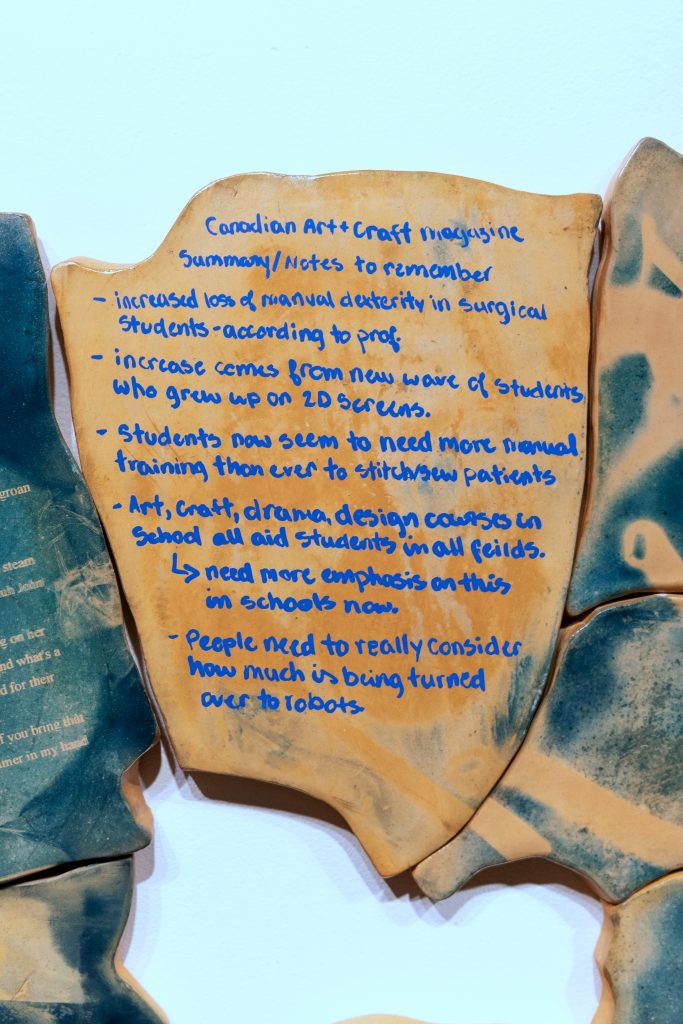 Canadian Art + Craft Magazine
Summary/Notes to remember
- increased loss of manual dexterity in surgical
students - according to prof.
- increase comes from new wave of students
who grew up on 2D screens.
- Students now seem to need more manual
training than ever to stitch/sew patients
- Art, craft, drama, design courses in
School all aid students in all feilds.
↳ need more emphasis on this
in schools now.
- People need to really consider
how much is being turned
over to robots.
groan
steam
John
g on her
nd what's a
d for their
f you bring that
mer in my hand